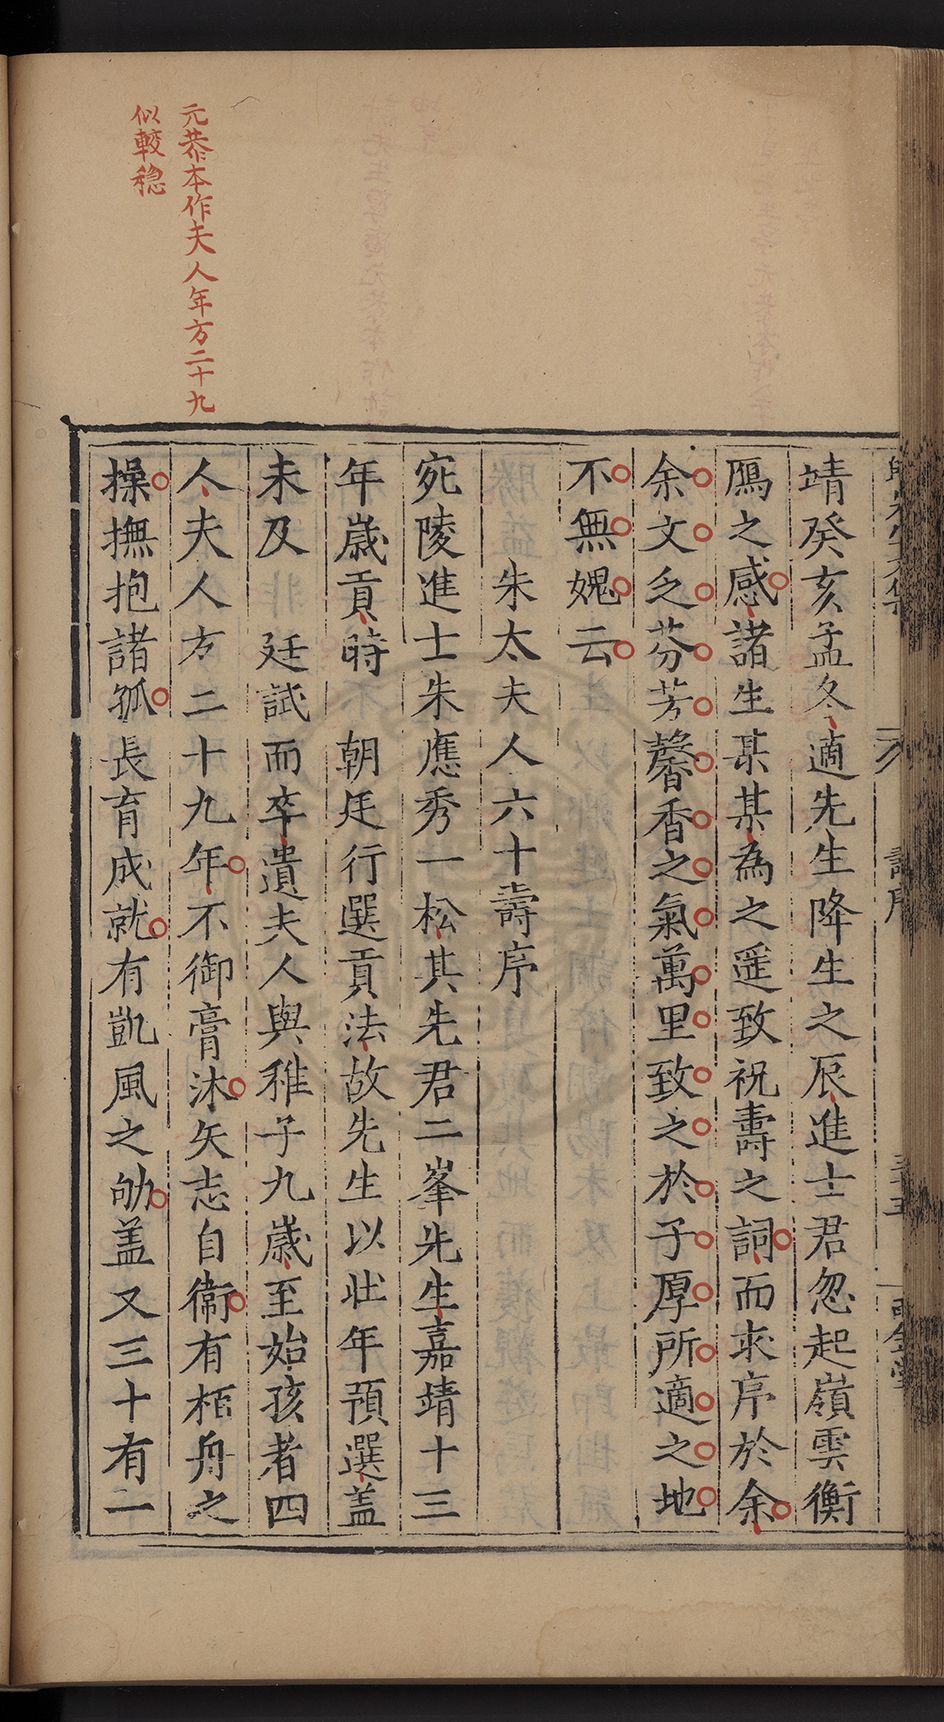 元恭本作夫人年方二十九
似較穩
壽序
靖癸亥孟冬適先生降生之辰進士君忽起嶺雲衡
鴈之感諸生某某為之遥致祝壽之詞而求序於余
余文乏芬芳馨香之氣萬里致之於子厚所適之地
不無媿云
朱太夫人六十壽序
宛陵進士朱應秀一松其先君二峯先生嘉靖十三
年歲貢時 朝廷行選貢法故先生以壯年預選盖
未及 廷試而卒遺夫人與稚子九歲至始孩者四
人夫人方二十九年不御膏沐矢志自衞有栢舟之
操撫抱諸孤長育成就有凱風之劬盖又三十有二